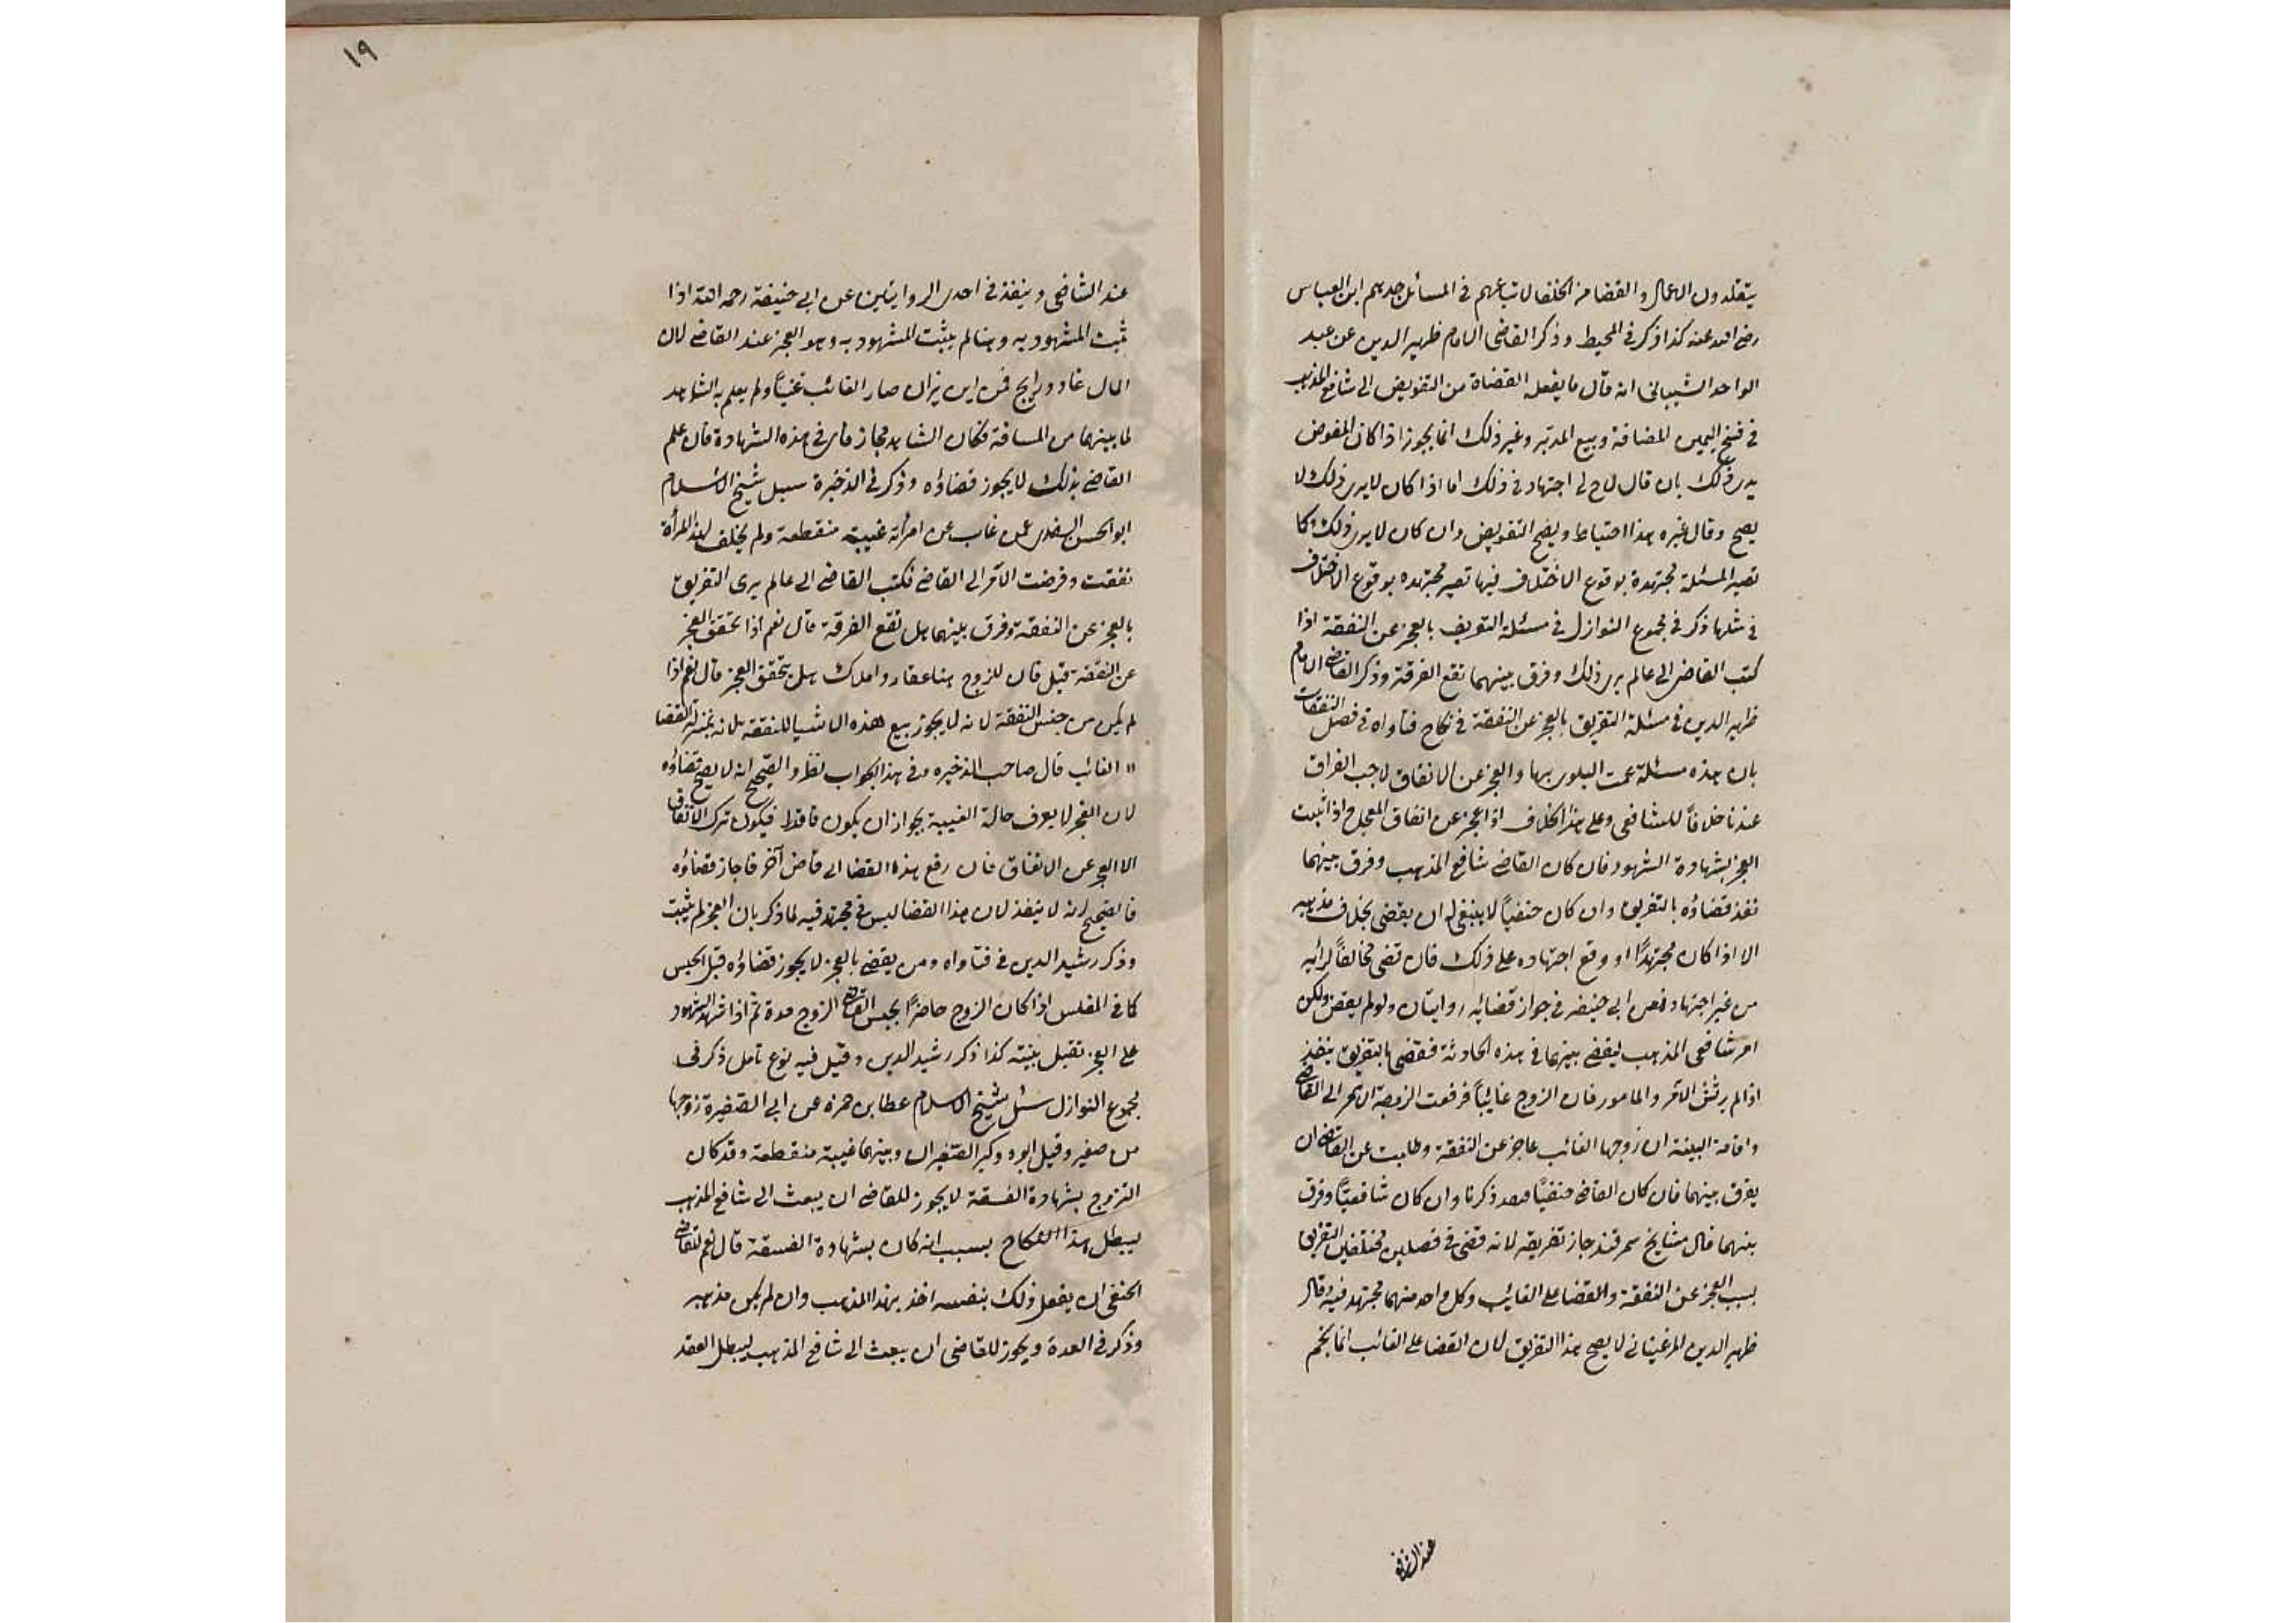 يتقلدون الاعمال والقضا من الخلفا لاتباعهم في المسائل جدهم ابن العباس
رضى الله عنه كذا ذكر في المحيط وذكر القاضى الامام ظهير الدين عن عبد
الواحد الشيبانى انه قال ما يفعله القضاة من التفويض الى شافع المذهب
في فسخ اليمين المضافة وبيع المدبر وغير ذلك انما يجوز اذا كان المفوض
يرى ذلك بان قال لاح لى اجتهاد في ذلك اما اذا كان لا يرى ذلك لا
يصح وقال غيره هذا احتياط ويصح التفويض وان كان لا يرى ذلك كما
تصير المسئلة مجتهدة بوقوع الاختلاف فيها تصير مجتهده بوقوع الاختلاف
في مثلها ذكر في مجموع النوازل في مسئلة التعريف بالعجز عن النفقة اذا
كتب القاضى الى عالم يرى ذلك وفرق بينهما تقع الفرقة وذكر القاضى الامام
ظهير الدين في مسئلة التفريق بالعجز عن النفقة في نكاح فتاواه في فصل النفقات
بان هذه مسئلة عمت البلوى بها والعجز عن الانفاق لا يوجب الفراق
عندنا خلافاً للشافعى وعلى هذا الخلاف اذا عجز عن انفاق المعجل اذا ثبت
العجز بشهادة الشهود فان كان القاضى شافع المذهب وفرق بينهما
نفذ قضاؤه بالتفريق وان كان حنفياً لا ينبغى له ان يقضى بخلاف مذهبه
الا اذا كان مجتهدًا او وقع اجتهاده على ذلك فان قضى مخالفاً لرائيه
من غير اجتهاد فعن ابى حنيفه في جواز قضائيه روايتان ولو لم يقض ولكن
امر شافعى المذهب ليقضى بينهما في هذه الحادثة فقضى بالتفريق ينفذ
اذا لم يرتش الآمر والمامور فان الزوج غايباً فرفعت الزوجة الامر الى القاضى
واقامة البينة ان زوجها الغائب عاجز عن النفقة وطلبت عن القاضى ان
يفرق بينهما فان كان القاضى حنفياً فقد ذكرنا وان كان شافعيًا وفرق
بينهما قال مشايخ سمرقند جاز تفريقه لانه قضى في فصلين مختلفين التفريق
بسبب العجز عن النفقة والقضا على الغائب وكل واحد منهما مجتهد فيه وقال
ظهير الدين المرغينانى لا يصح هذا التفريق لان القضا على الغائب انما يختم
عند الشافعى
١٩
عند الشافعى وينفذ في احدى الروايتين عن ابى حنيفة رحمه الله اذا
ثبت المشهود به وهنا لم يثبت المشهود به وهو العجز عند القاضى لان
المال غاد ورايح فمن اين نزال صار الغائب غنياً ولم يعلم به الشاهد
لما بينهما من المسافة فكان الشاهد مجاز فاى في هذه الشهادة فان علم
القاضى بذلك لا يجوز قضاؤه وذكر في الذخيرة سيل شيخ الاسلام
ابو الحسن السغدى عمن غاب عن امرأته غيبة منقطعة ولم يخلف لهذا المرأة
نفقت وفرضت الآمر الى القاضى فكتب القاضى الى عالم يرى التفريق
بالعجز عن النفقة وفرق بينهما هل تقع الفرقة قال نعم اذا تحقق العجز
عن النفقة قيل فان للزوج هنا عقار واملاك هل يتحقق العجز قال نعم اذا
لم يكن من جنس النفقة لانه لا يجوز بيع هذه الاشيا للنفقة لانه بمنزلة القضا
الغائب قال صاحب الذخيره وفي هذا الجواب نظر والصحيح انه لا يصح قضاؤه
لان العجز لا يعرف حالة الغيبة بجواز ان يكون قادرا فيكون ترك الانفاق
الا العجز عن الانفاق فان رفع هذه القضا الى قاض آخر فاجاز قضاؤه
فالصحيح انه لا ينفذ لان هذا القضا ليس في مجتهد فيه لما ذكر بان العجز لم يثبت
وذكر رشيد الدين في فتاواه ومن يقضى بالعجز لا يجوز قضاؤه قبل الحبس
كما في المفلس اذا كان الزوج حاضرًا يحبس القاضى الزوج مدة ثم اذا شهد الشهود
على العجز تقبل بينته كذا ذكر رشيد الدين وقيل فيه نوع تامل ذكر في
مجموع النوازل سئل شيخ الاسلام عطا بن حمزه عن ابى الصغيرة زوجها
من صغير وقيل ابوه وكبر الصغيران وبينهما غيبة منقطعة وقد كان
التزوج بشهادة الفسقة لا يجوز للقاضى ان يبعث الى شافع المذهب
ليبطل هذا النكاح بسبب انه كان بشهادة الفسقة قال نعم للقاضى
الحنفى ان يفعل ذلك بنفسه اخذ بهذا المذهب وان لم يكن مذهبه
وذكر في العدة ويجوز للقاضى ان يبعث الى شافع المذهب ليبطل العقد